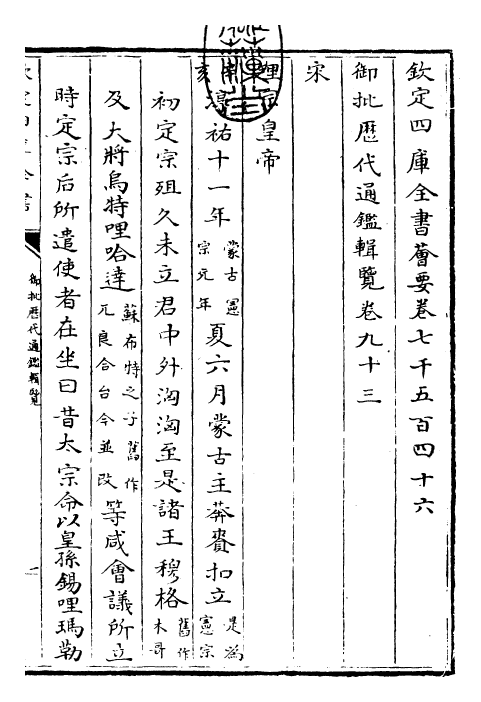 欽定四庫全書薈要卷七千五百四十六
御批歷代通鑑輯覽卷九十三
宋
理宗皇帝
亥
淳祐十一年蒙古憲宗元年夏六月蒙古主莽賚扣立是為憲宗
初定宗殂久未立君中外洶洶至是諸王穆格舊作木哥
及大將烏特哩哈達蘇布特之子舊作兀良合台今並改等咸會議所立
御批歷代通鑑輯覽
一
時定宗后所遣使者在坐曰昔太宗命以皇孫錫哩瑪勒